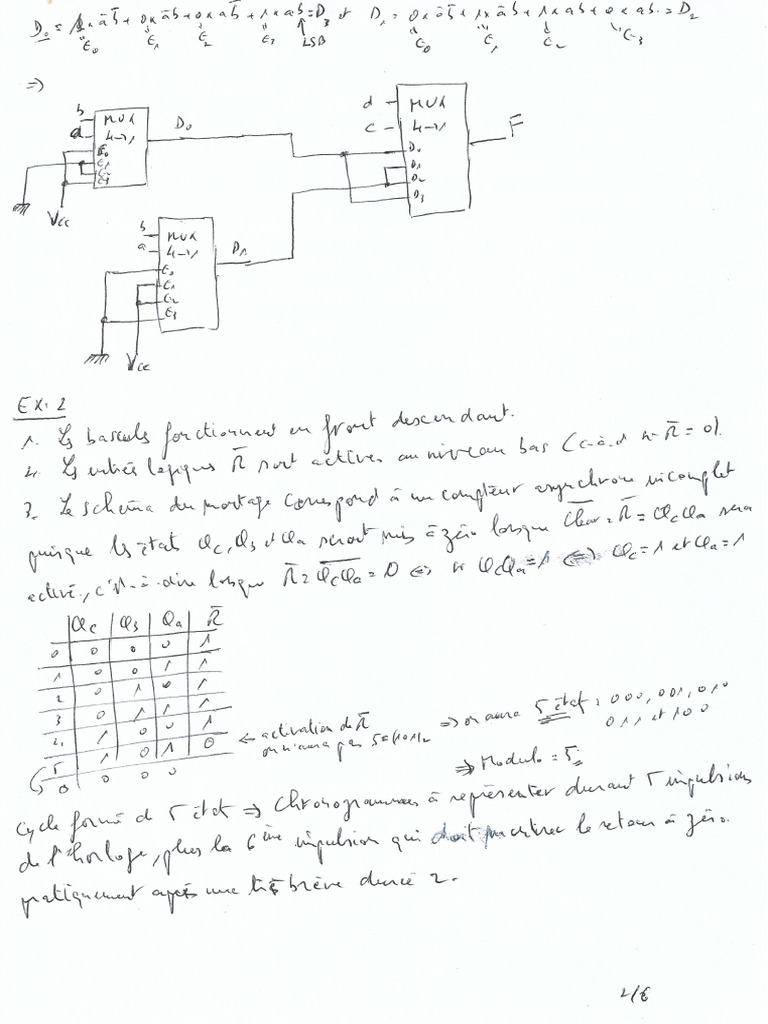 D₀ = 1×āb̄ + 0×āb + 0×ab̄ + 1×ab = D₃ et D₁ = 0×āb̄ + 1×āb + 1×ab + 0×ab = D₂
E₀ E₁ E₂ E₃ LSB E₀ E₁ E₂ E₃
⇒)
b
a
MUX
4→1
E₀
E₁
E₃
D₀
Vcc
b
a
MUX
4→1
E₀
E₁
E₂
E₃
D₁
Vcc
d
c
MUX
4→1
D₀
D₁
D₂
D₃
F
EX. 2
1. Les bascules fonctionnent en front descendant.
2. Les entrées logiques R̄ sont actives au niveau bas (c-à-d R̄ = 0).
3. Le schéma du montage correspond à un compteur asynchrone incomplet
puisque les états Qc, QB et Qa seront mis à zéro lorsque Clear = R̄ = QcQa sera
activé, c'est-à-dire lorsque R̄ = QcQa = 0 ⇔ QcQa = 1 ⇔ Qc = 1 et Qa = 1
Qc QB Qa R̄
0 0 0 0 1
1 0 0 1 1
2 0 1 0 1
3 0 1 1 1
4 1 0 0 1
5 1 0 1 0 ← activation de R̄
on n'aura pas 5=(101)₂
0 0 0 0
⇒ on aura 5 état : 000, 001, 010
011 et 100
⇒ Modulo = 5
Cycle formé de 5 état ⇒ Chronogrammes à représenter durant 5 impulsions
de l'horloge, plus la 6ème impulsion qui doit montrer le retour à zéro.
pratiquement après une très brève durée
2/6